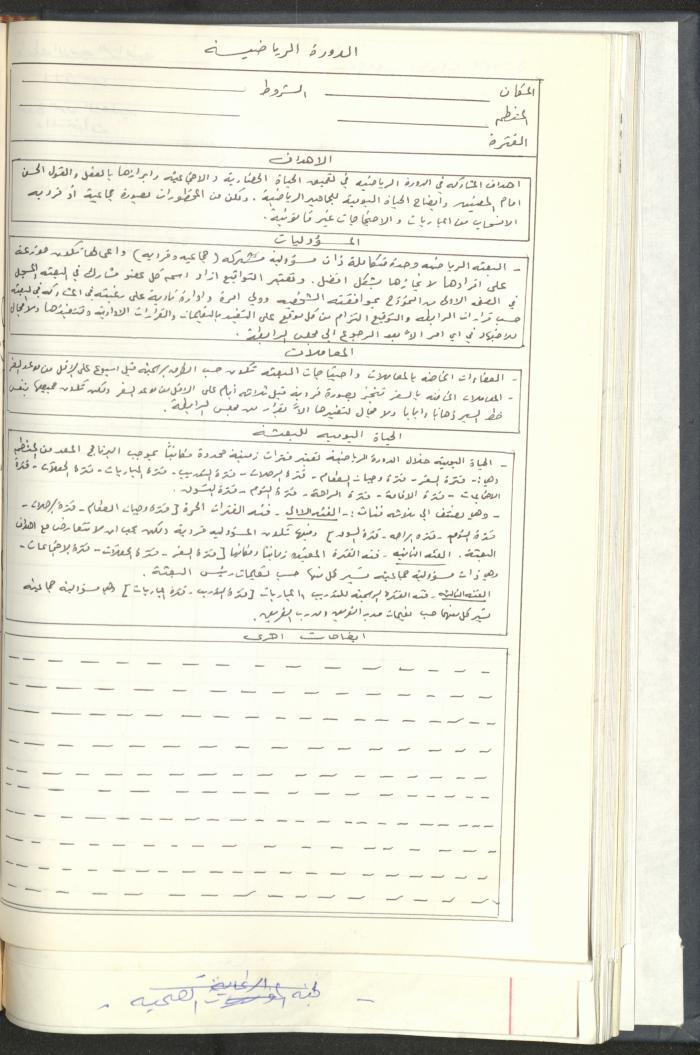 الدورة الرياضية
المكان ــــــــ الشروط ــــــــ
المنظم ــــــــ
الفترة
الاهداف
اهداف المشاركة في الدورة الرياضية في تحقيق الحياة الحضارية والاجتماعية وابرازها بالعقل والقول الحسن
امام المضيفين وايضاح الحياة اليومية للجماهير الرياضية . وتكن من المحظورات بصورة جماعية أو فردية
الانسحاب من المباريات والاحتجاجات غير قانونية .
المسؤوليات
- البعثة الرياضية وحدة متكاملة ذات مسؤولية مشتركة (جماعية وفردية) واعمالها تكون موزعة
على افرادها لانجازها بشكل افضل. وتعتبر التواقيع ازاء اسم كل عضو مشارك في البعثة المسجل
في الصفحة الاولى من النموذج بموافقته الشخصية وولي امره وادارة ناديه على رغبته في المشاركة في البعثة
حسب قرارات الرابطة والتوقيع التزام من كل موقع على التقيد بالتعليمات والقرارات الادارية وتنفيذها ولا مجال
للاجتهاد في اي امر الا بعد الرجوع الى مجلس الرابطة .
المعاملات
- الكفاءات الخاصة بالمعاملات واحتياجات البعثة تكون حسب الطرق الرسمية قبل اسبوع على الاقل من موعد السفر
- المعاملات الخاصة بالسفر تنجز بصورة فردية قبل ثلاثة أيام على الاقل من موعد السفر ولكن تكون جميعها بنفس
خط السير ذهابا وايابا ولا مجال لتغييرها الا بقرار من مجلس الرابطة.
الحياة اليومية للبعثة
- الحياة اليومية خلال الدورة الرياضية تعتبر فترات زمنية محددة مكانياً بموجب البرنامج المعد من المنظم
وهي:- فترة السفر - فترة وجبات الطعام - فترة الرحلات - فترة التدريب - فترة المباريات - فترة الحفلات - فترة
الاجتماعات - فترة الاقامة - فترة الراحة - فترة النوم - فترة التسوق.
- وهي تصنف الى ثلاثة فئات :- الفئة الاولى - فئة الفترات الحرة [فترة وجبات الطعام - فترة الرحلات -
فترة النوم - فترة الراحة - فترة التسوق] وفيها تكون المسؤولية فردية ولكن يجب ان لا تتعارض مع اهداف
البعثة. الفئة الثانية - فئة الفترة المقيدة زمانيا ومكانيا [فترة السفر - فترة الحفلات - فترة الاجتماعات -
وهي ذات مسؤولية جماعية تسير كل منها حسب تعليمات رئيس البعثة .
الفئة الثالثة - فئة الفترة الرسمية للتدريب والمباريات [فترة التدريب - فترة المباريات] وهي مسؤولية جماعية
تسير كل منها حسب تعليمات مدير الفريق ومدرب الفريق.
ايضاحات اخرى